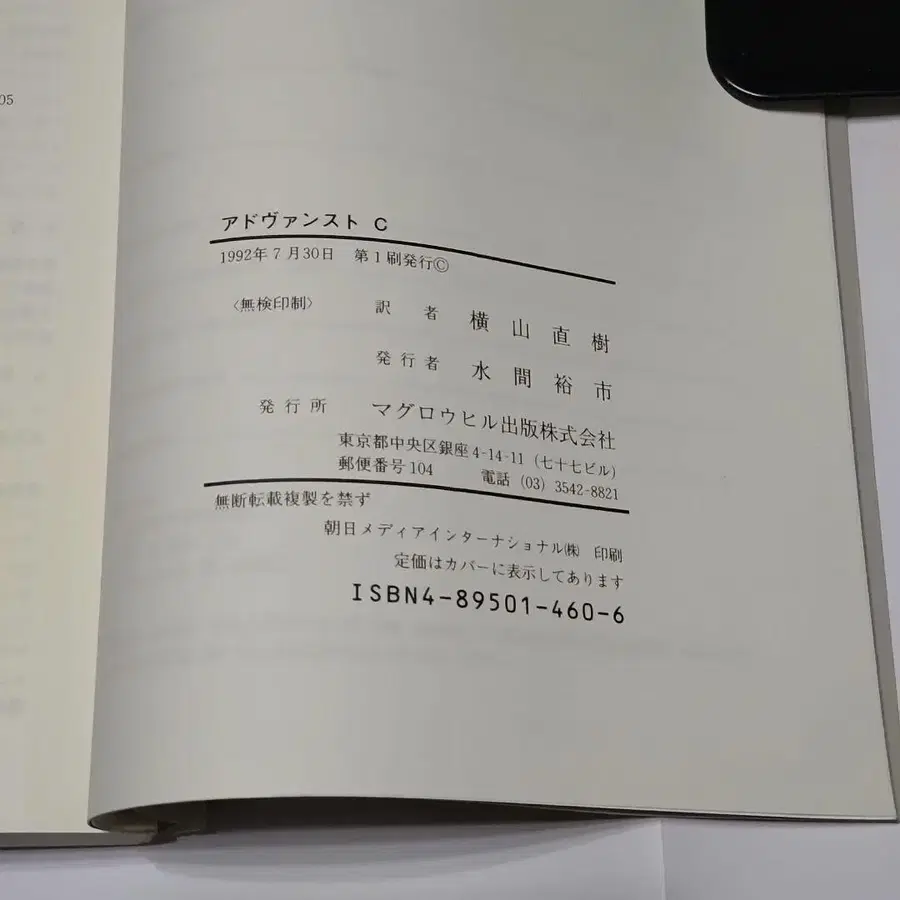 05
アドヴァンスト C
1992年7月30日 第1刷発行©
〈無検印制〉 訳者 横山直樹
発行者 水間裕市
発行所 マグロウヒル出版株式会社
東京都中央区銀座4-14-11(七十七ビル)
郵便番号104 電話(03)3542-8821
無断転載複製を禁ず
朝日メディアインターナショナル㈱ 印刷
定価はカバーに表示してあります
ISBN4-89501-460-6